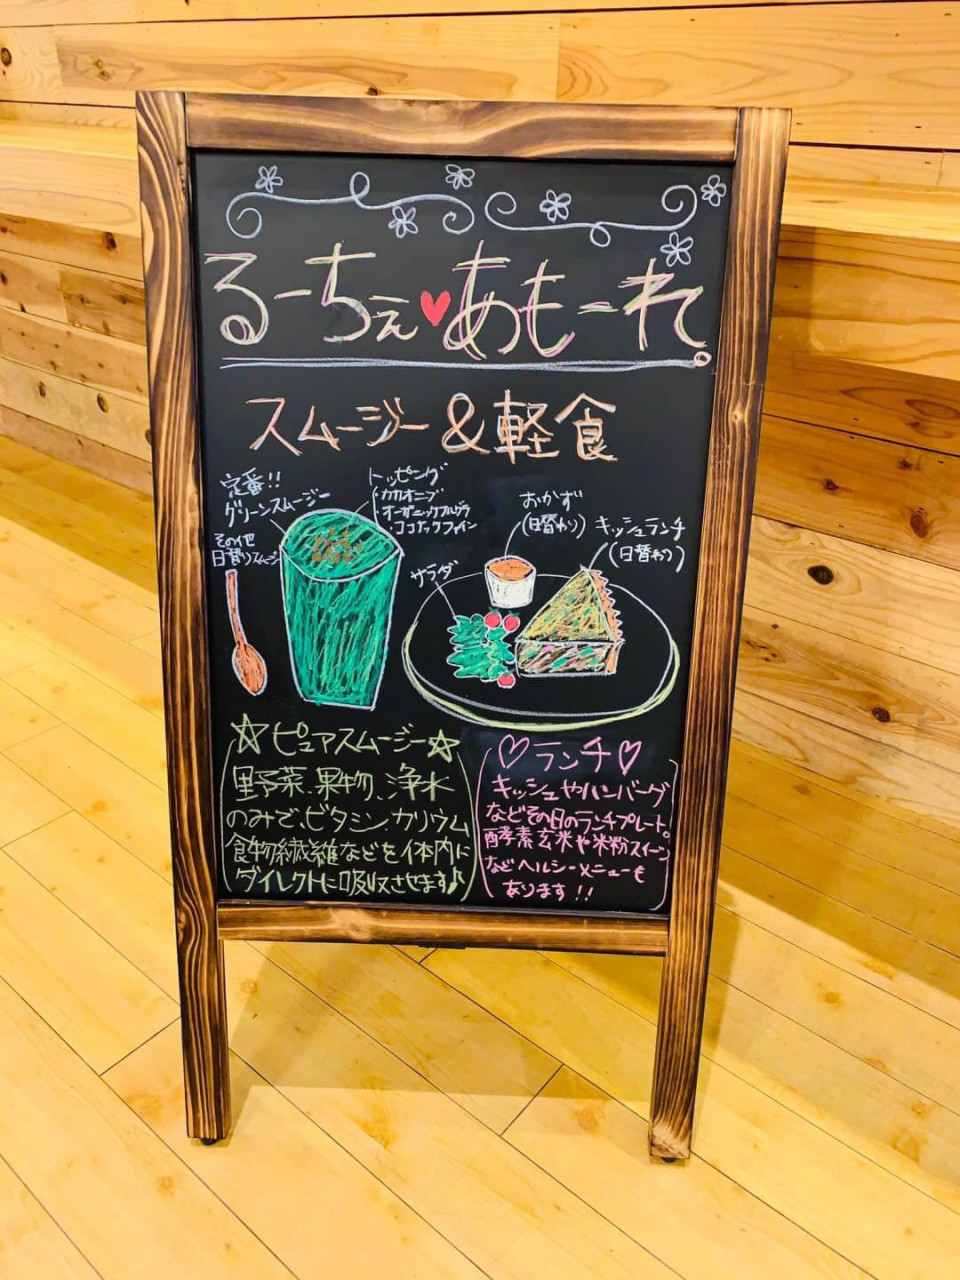 るーちぇ♥あもーれ。
スムージー&軽食
定番!!
グリーンスムージー
その他
日替りスムージー
トッピング
・カカオニブ
・オーガニックグラノラ
・ココナッツファイン
おかず
(日替わり)
キッシュランチ
(日替わり)
サラダ
☆ピュアスムージー☆
野菜、果物、浄水
のみで、ビタミン、カリウム
食物繊維などを体内に
ダイレクトに吸収させます♪
♡ランチ♡
キッシュやハンバーグ
などその日のランチプレート。
酵素玄米や米粉スイーツ
などヘルシーメニューも
あります!!